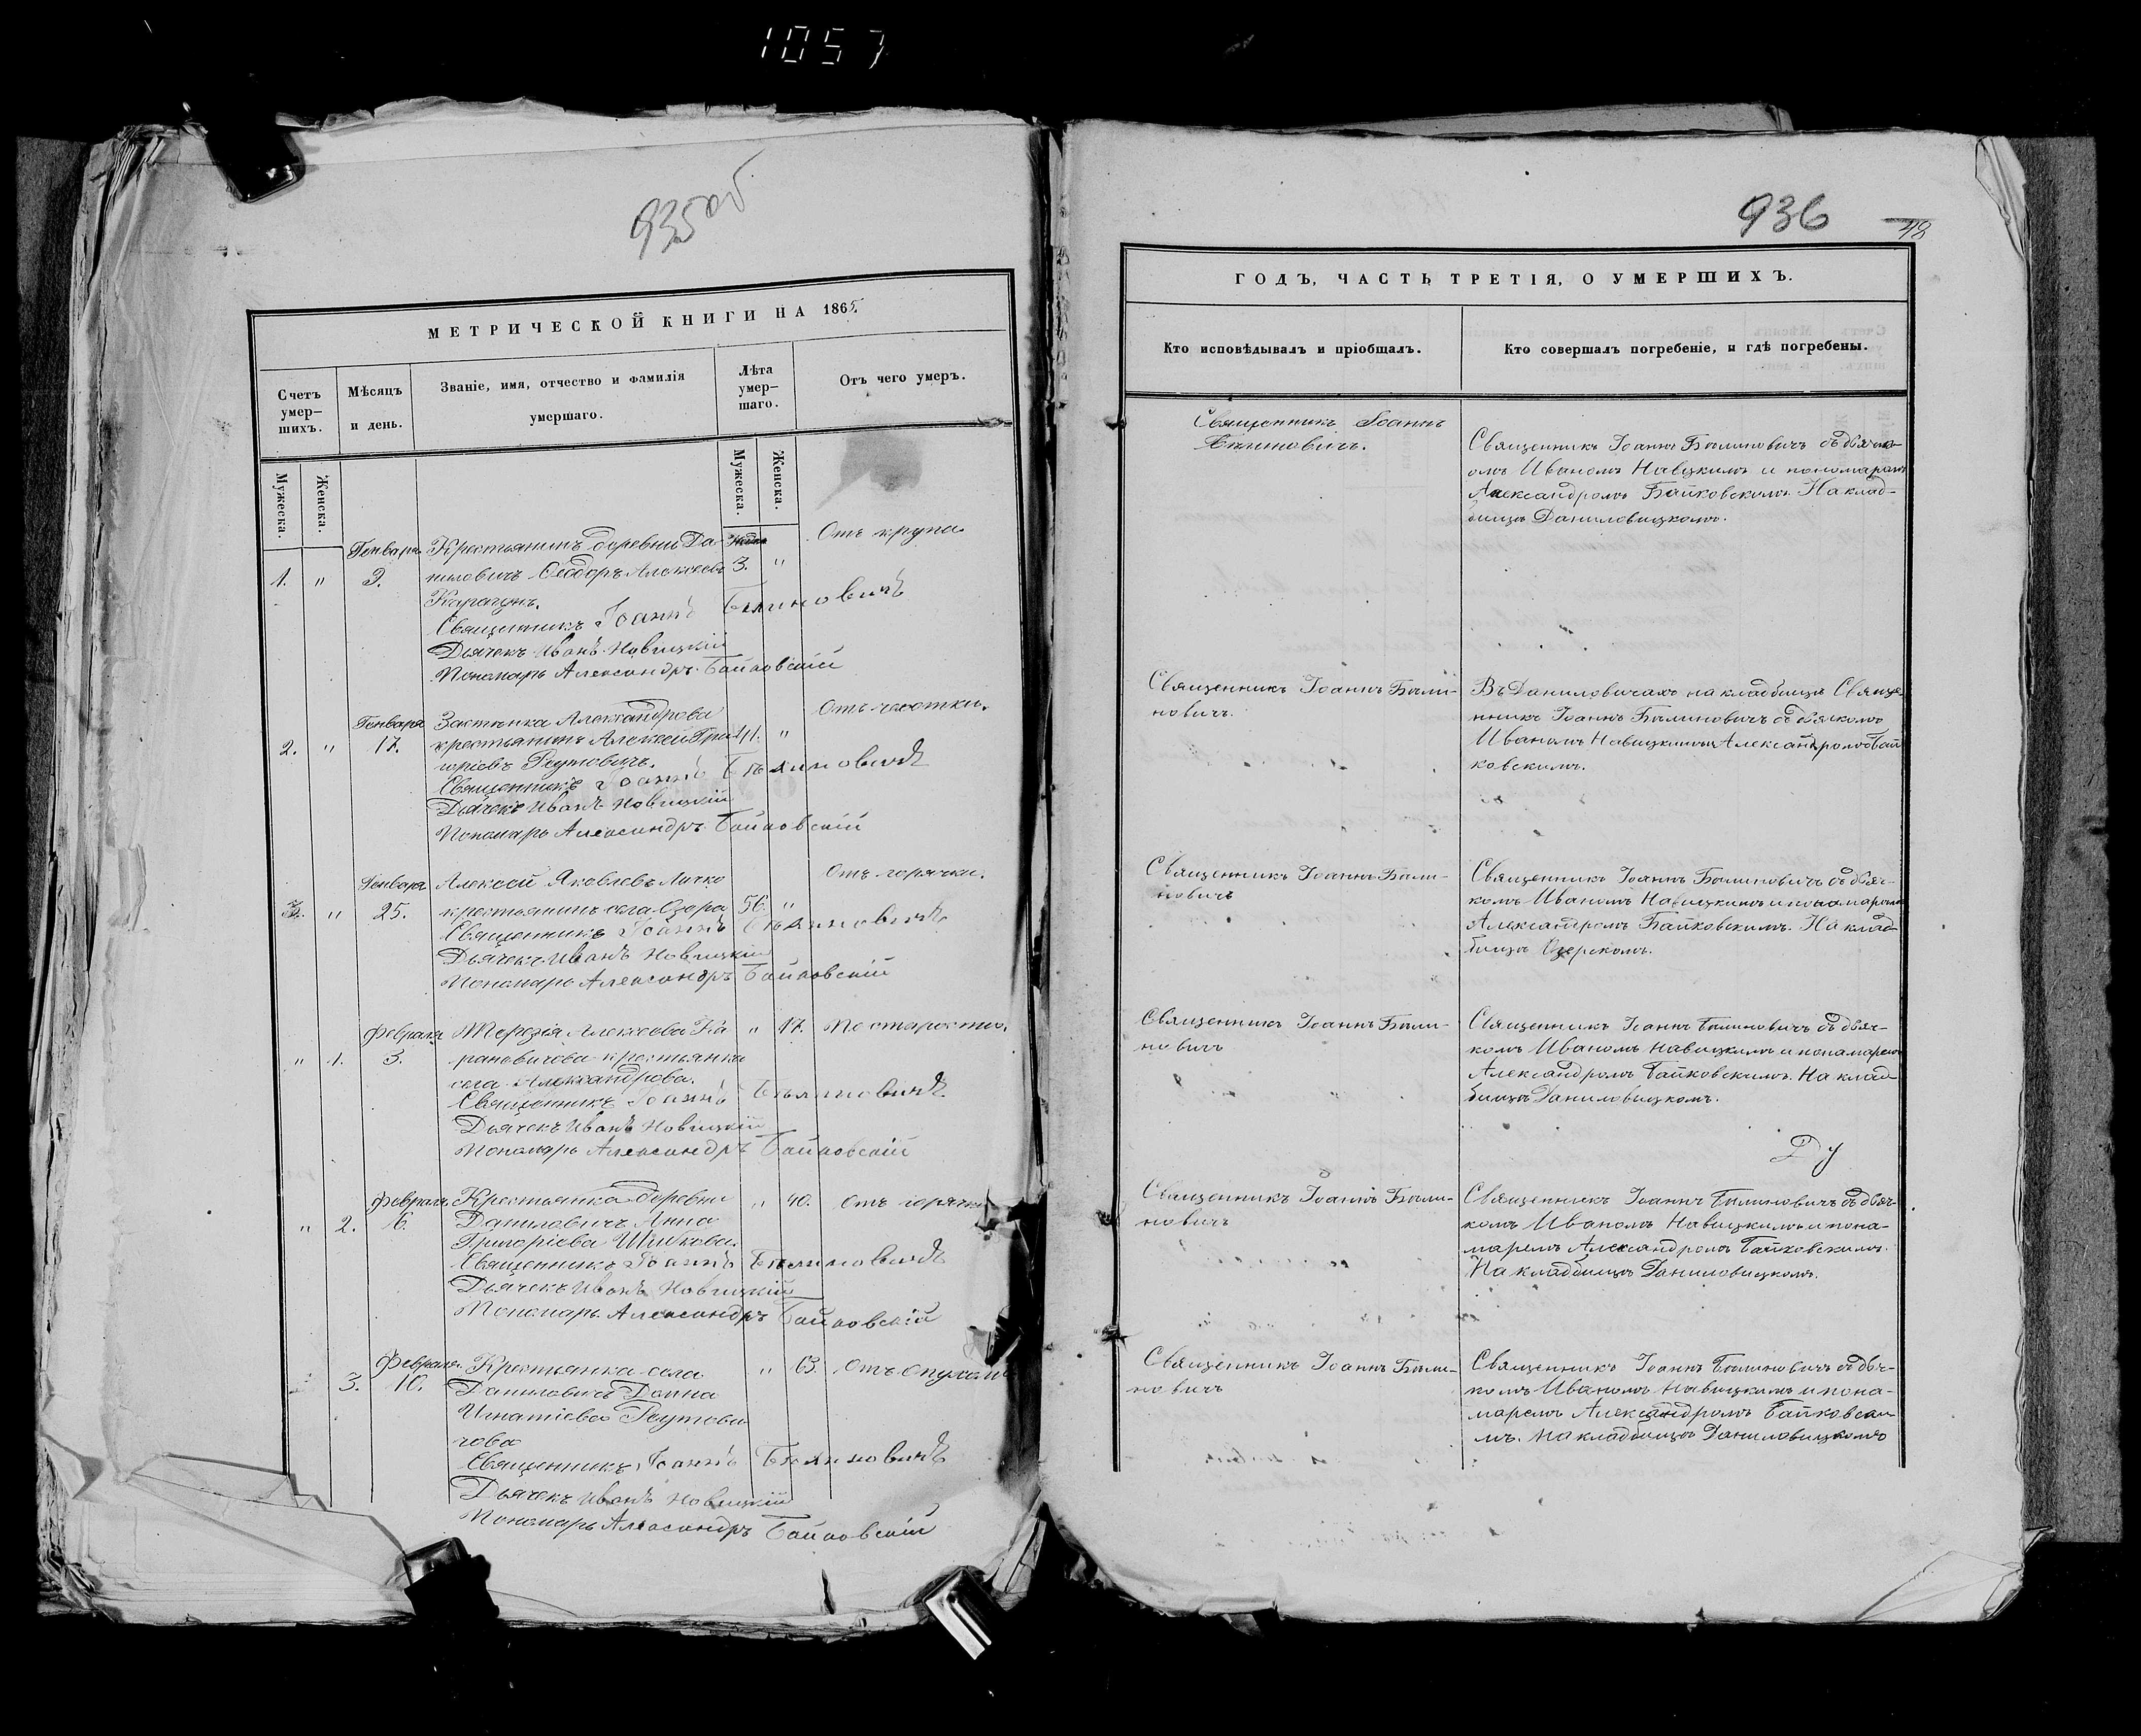 1057
935об
МЕТРИЧЕСКОЙ КНИГИ НА 1865
Счетъ умер-шихъ.
Мѣсяцъ и день.
Званіе, имя, отчество и фамилія умершаго.
Лѣта умер-шаго.
Отъ чего умеръ.
Мужеска.
Женска.
Мужеска.
Женска.
Генваря Крестьянинъ деревни Да- Отъ крупа.
1. " 9. ниловичъ Ѳеодоръ Алексеевъ 3. "
Священникъ Іоаннъ Былиновичъ
Дьячекъ Иванъ Новицкій
Пономарь Александръ Байковскій
Генваря Застѣнка Александрова Отъ чесотки.
2. " 17. крестьянинъ Алексей Гри- "
горіевъ Реутовичъ.
Священникъ Іоаннъ Былиновичъ
Дьячекъ Иванъ Новицкій
Пономарь Александръ Байковскій
Генваря Алексей Яковлевъ Личко Отъ горячки.
3. " 25. крестьянинъ села Озера 56. "
Священникъ Іоаннъ Былиновичъ
Дьячекъ Иванъ Новицкій
Пономарь Александръ Байковскій
Февраля Терезія Алексеева Ка- " По старости.
" 1. 3. рановичова крестьянка
села Александрова.
Священникъ Іоаннъ Былиновичъ
Дьячекъ Иванъ Новицкій
Пономарь Александръ Байковскій
Февраля Крестьянка деревни " 40. Отъ горячки
" 2. 6. Даниловичъ Анна
Григоріева
Священникъ Іоаннъ Былиновичъ
Дьячекъ Иванъ Новицкій
Пономарь Александръ Байковскій
Февраля Крестьянка села " 63. Отъ опухоли
3. 10. Даниловичъ Домна
Игнатіева Реутови
чова
Священникъ Іоаннъ Былиновичъ
Дьячекъ Иванъ Новицкій
Пономарь Александръ Байковскій
936
48
ГОДЪ, ЧАСТЬ ТРЕТІЯ, О УМЕРШИХЪ.
Кто исповѣдывалъ и пріобщалъ.
Кто совершалъ погребеніе, и гдѣ погребены.
Священникъ Іоаннъ
Былиновичъ.
Священникъ Іоаннъ Былиновичъ съ дьячк-
омъ Иваномъ Навицкимъ и пономаремъ
Александромъ Байковскимъ. На клад-
бищѣ Даниловицкомъ.
Священникъ Іоаннъ Были-
новичъ.
Въ Даниловичахъ на кладбищѣ Свяще
нникъ Іоаннъ Былиновичъ съ дьячкомъ
Иваномъ Навицкимъ и Александромъ Бай
ковскимъ.
Священникъ Іоаннъ Были-
новичъ
Священникъ Іоаннъ Былиновичъ съ дьяч-
комъ Иваномъ Навицкимъ и понамаремъ
Александромъ Байковскимъ. На клад-
бищѣ Озерскомъ.
Священникъ Іоаннъ Были-
новичъ
Священникъ Іоаннъ Былиновичъ съ дьяч-
комъ Иваномъ Навицкимъ и понамаремъ
Александромъ Байковскимъ. На клад-
бищѣ Даниловицкомъ.
Священникъ Іоаннъ Были-
новичъ
Священникъ Іоаннъ Былиновичъ съ дьяч-
комъ Иваномъ Навицкимъ и пона-
маремъ Александромъ Байковскимъ.
На кладбищѣ Даниловицкомъ.
Священникъ Іоаннъ Были-
новичъ
Священникъ Іоаннъ Былиновичъ съ дьяч-
комъ Иваномъ Навицкимъ и пона-
маремъ Александромъ Байковски-
мъ. На кладбищѣ Даниловицкомъ